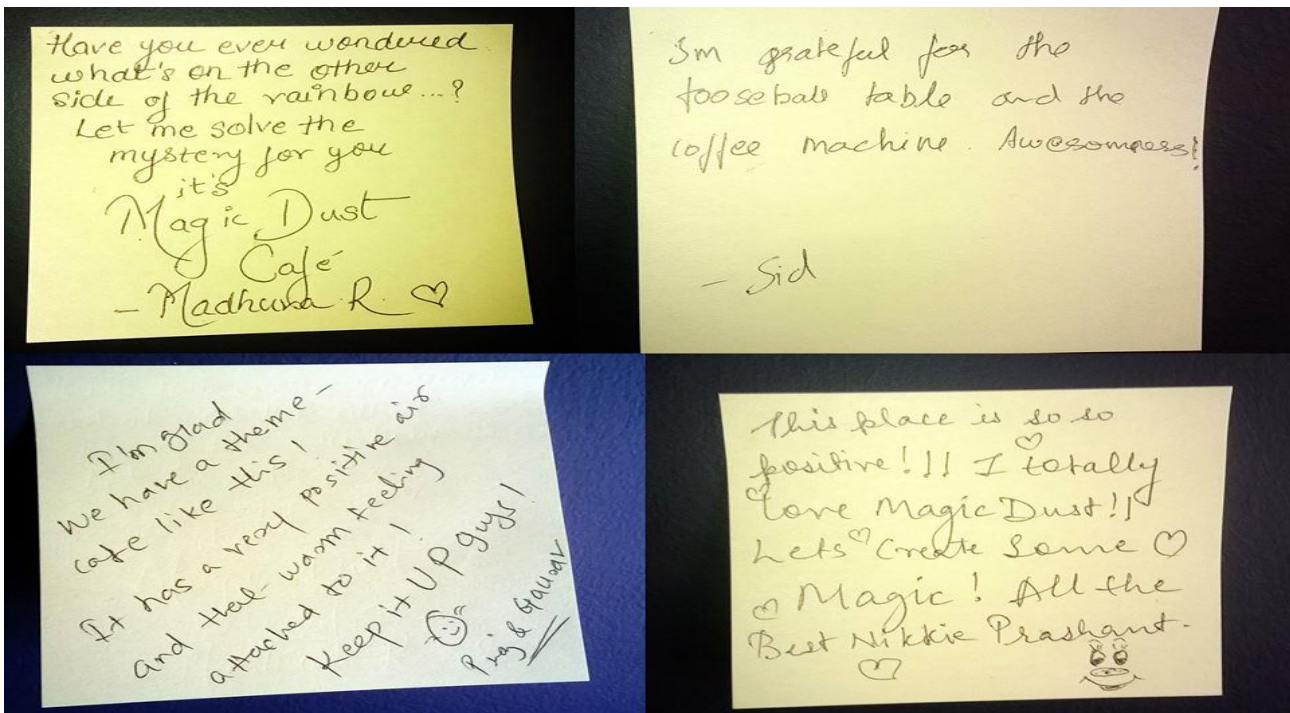 Have you ever wondered
what's on the other
side of the rainbow...?
Let me solve the
mystery for you
it's
Magic Dust
Café
- Madhura R.
I'm grateful for the
fooseball table and the
coffee machine. Awesomness!
- Sid
I'm glad
we have a theme-
cafe like this!
It has a very positive air
and that warm feeling
attached to it!
Keep it up guys!
&
This place is so so
positive!!! I totally
love Magic Dust!!
Lets Create Some
Magic! All the
Best Nikkie Prashant.